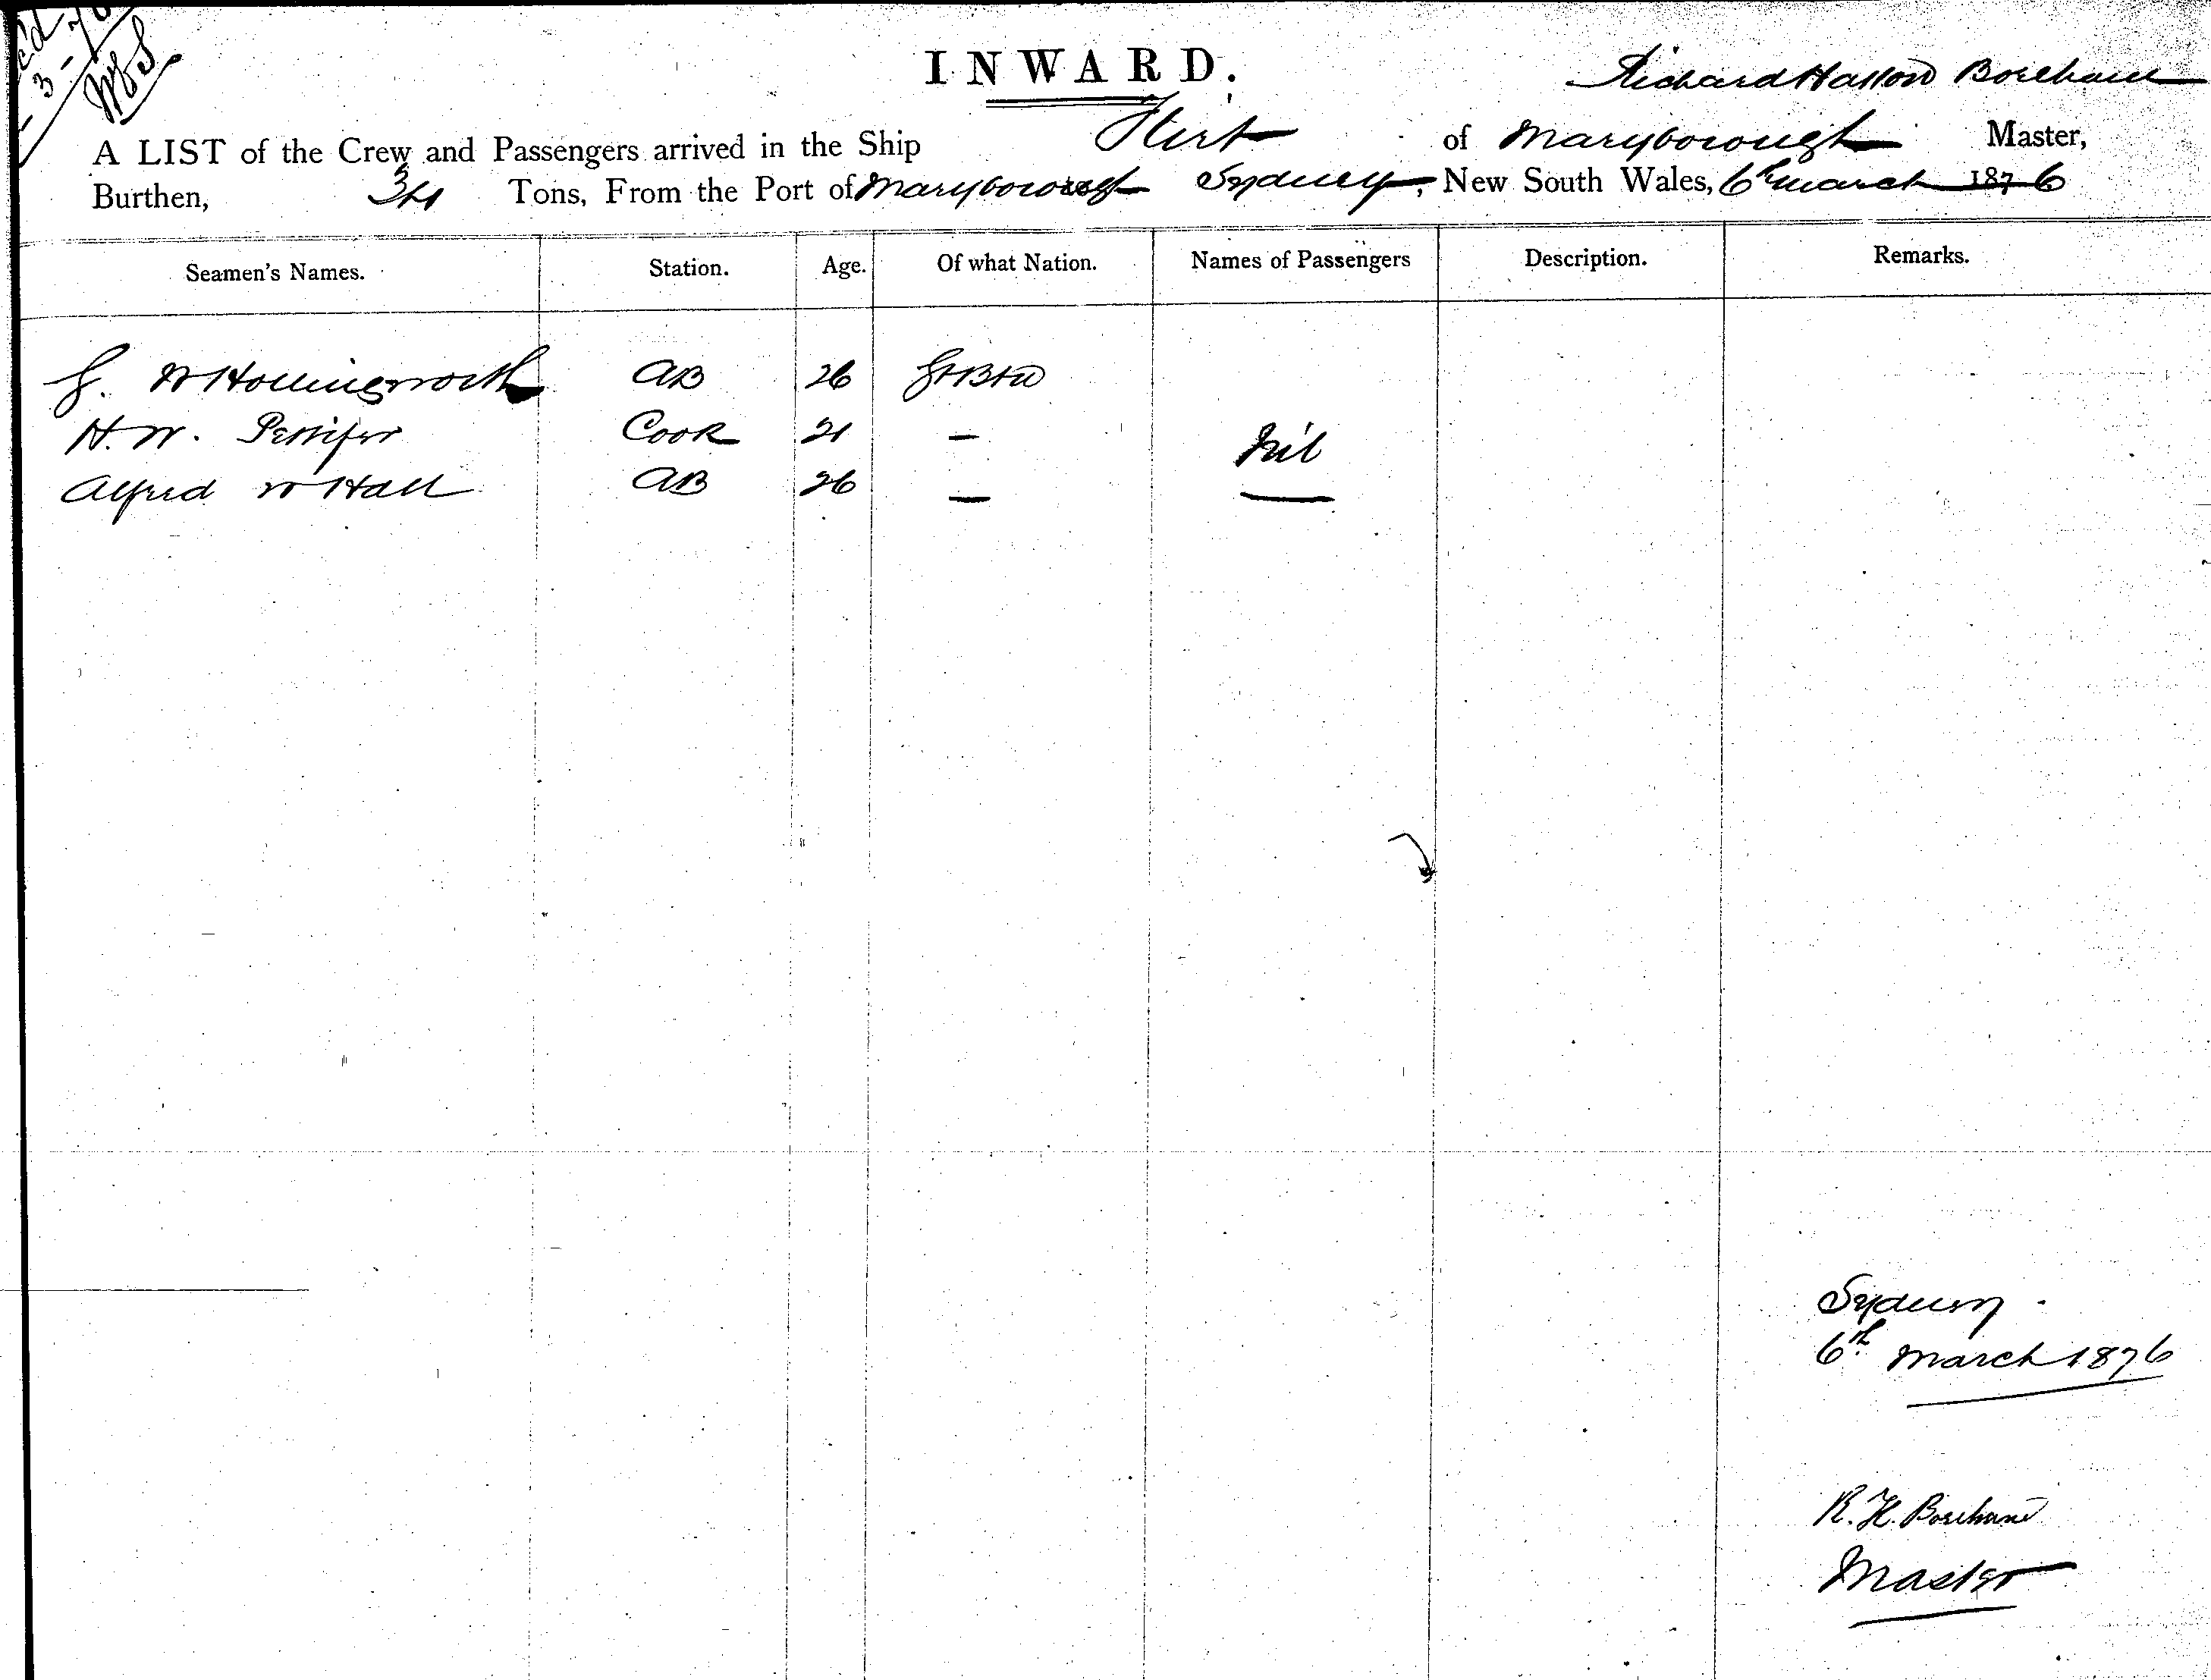 WES
INWARD.
Richard Boreham
A LIST of the Crew and Passengers arrived in the Ship Flirt of Maryborough Master,
Burthen, Tons, From the Port of Maryborough Sydney, New South Wales, 6th March 1876
Seamen's Names. Station. Age. Of what Nation. Names of Passengers Description. Remarks.
G. W Hollingsworth AB 26 Gt Btn
H. W. Pettifer Cook 21 — Nil
Alfred W Hall AB 26 —
Sydney
6th March 1876
R. H. Boreham
Master